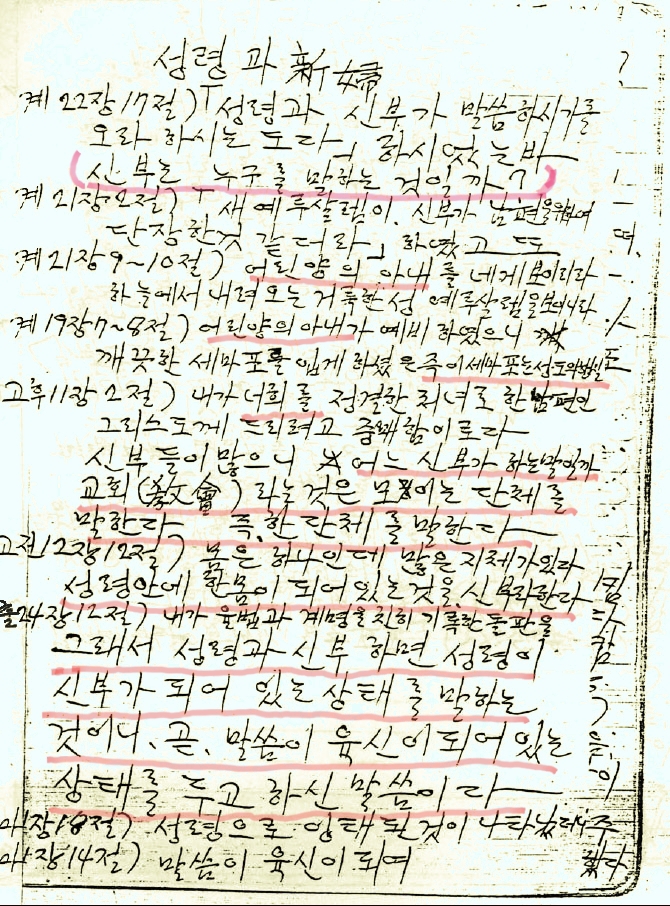 성령과 新婦
계 22장 17절) 「성령과 신부가 말씀하시기를
오라 하시는도다」 하시었는바
(신부는 누구를 말하는 것일까?)
계 21장 2절) 「새 예루살렘이. 신부가 남편을 위하여
단장한것 같더라」 하였고 또
계 21장 9~10절) 어린양의 아내를 네게 보이리라
하늘에서 내려오는 거룩한 성 예루살렘을 보이니라
계 19장 7~8절) 어린양의 아내가 예비하였으니
깨끗한 세마포를 입게 하셨은즉 이 세마포는 성도의
고후 11장 2절) 내가 너희를 정결한 처녀로 한 남편인
그리스도께 드리려고 중매함이로다
신부들이 많으니 어느 신부가 하는 말인가
교회(敎會)라는 것은 모이는 단체를
말한다 즉, 한 단체를 말한다
고전 12장 12절) 몸은 하나인데 많은 지체가 있다
성령안에 한몸이 되어 있는 것을 신부라 한다
출 24장 12절) 내가 율법과 계명을 친히 기록한 돌판을
그래서 성령과 신부 하면 성령이
신부가 되어 있는 상태를 말하는
것이니, 곧, 말씀이 육신이 되어 있는
상태를 두고 하신 말씀이다
마 1장 18절) 성령으로 잉태된 것이 나타났더니
1장 14절) 말씀이 육신이 되여